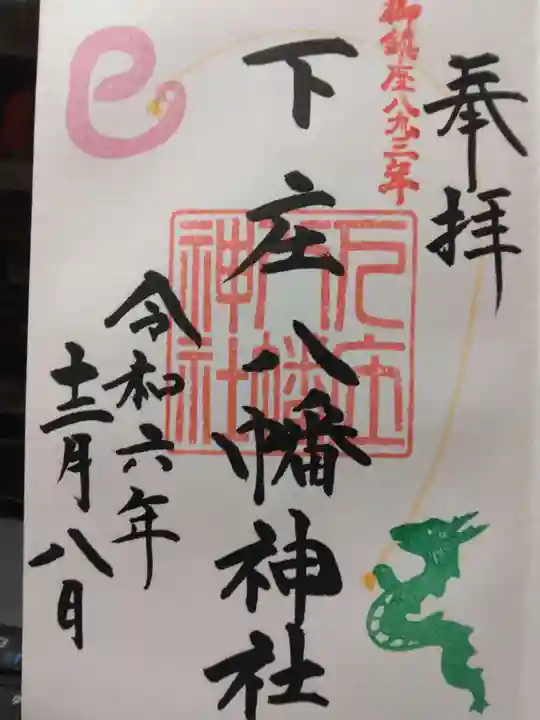 奉拝
御鎮座八九二年
下庄八幡神社
下庄
八幡
神社
令和六年
十二月八日
巳